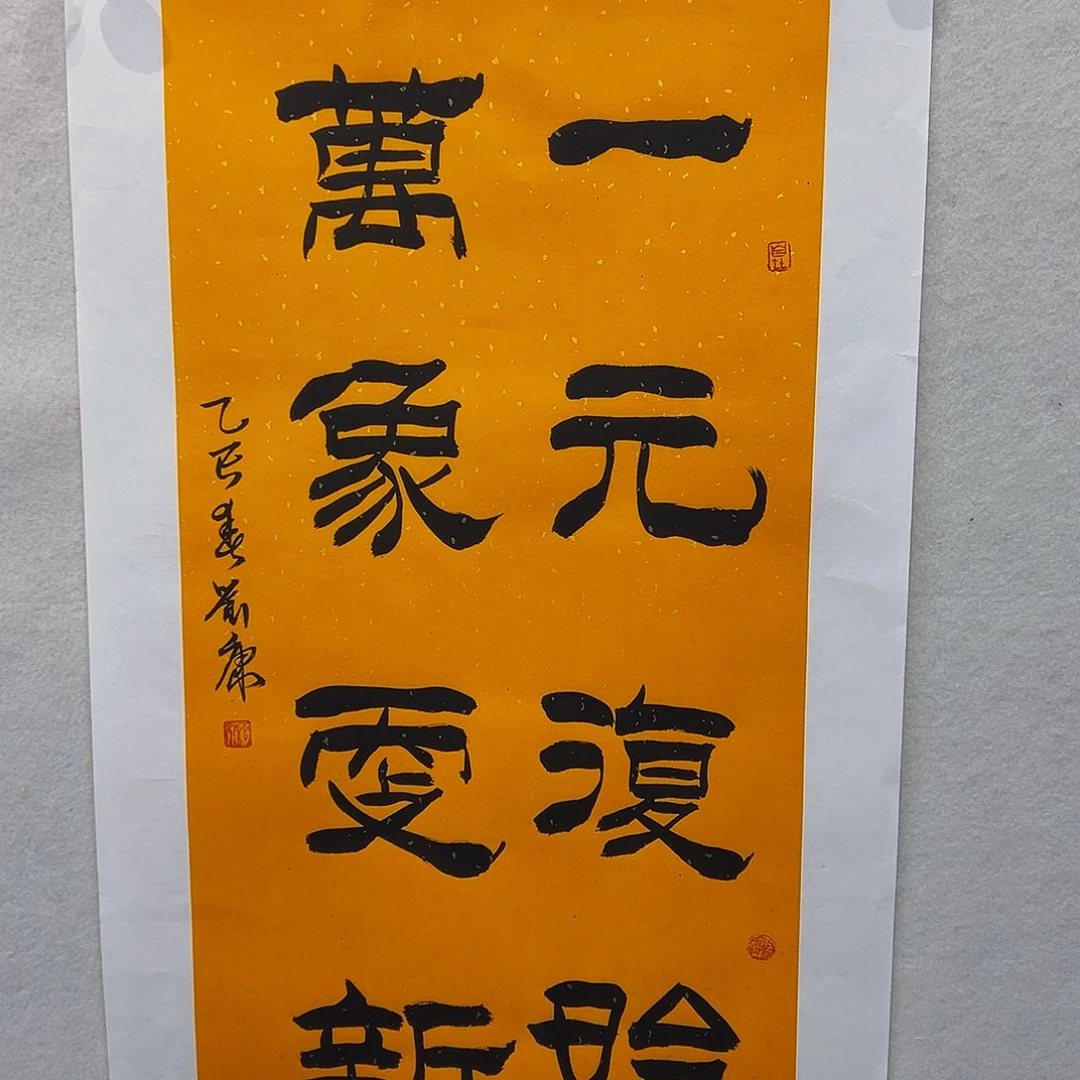 一元復始
萬象更新
乙巳春